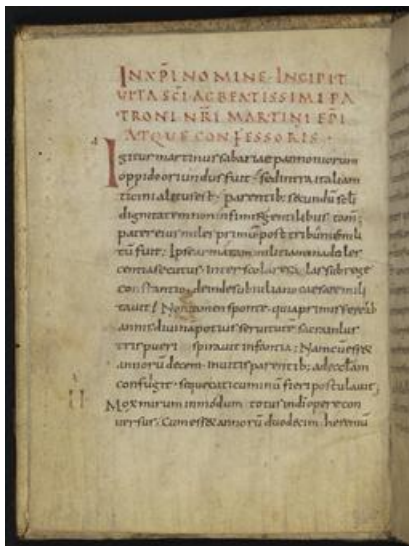 IN XPI NOMINE · INCIPIT
VITA SCI AC BEATISSIMI PA
TRONI NRI MARTINI EPI
ATQUE CONFESSORIS ·
Igitur martinus sabariae pannoniorum
oppido oriundus fuit / sed intra italiam
ticini altus est / parentib; secundū scli
dignitatem non infimis gentilibus tam;
pater eius miles primū post tribun militū
tū fuit ; Ipse armatam militiam in adoles
centia secutus · inter scolares alas sub rege
constantio · deinde sub iuliano caesare mili
tavit / Non tamen sponte · quia primis fere ab
annis divina potius servitutē sacra inlus
tris pueri spiravit infantia ; Nam cū esset
annorū decem · invitis parentib; ad ecclam
confugit · seque caticuminū fieri postulavit ;
Mox mirum in modum totus in di opere con
versus · Cum esset annorū duodecim · heremū